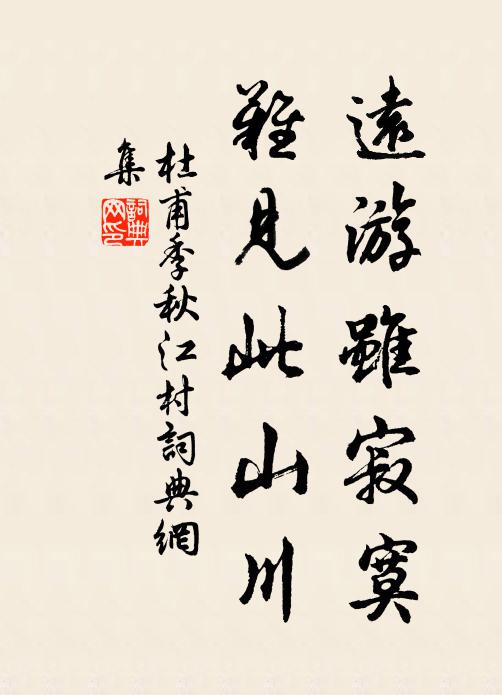 遠游雖寂寞
難見此山川
杜甫季秋江村詞典網
集
詞典網印